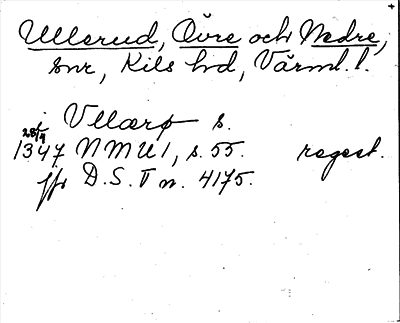 Ullerud, Övre och Nedre,
snr, Kils hd, Värml. l.
i Vllærø s.
28/4
1347 NMU1, s. 55. regest.
jfr D.S. V n. 4175.